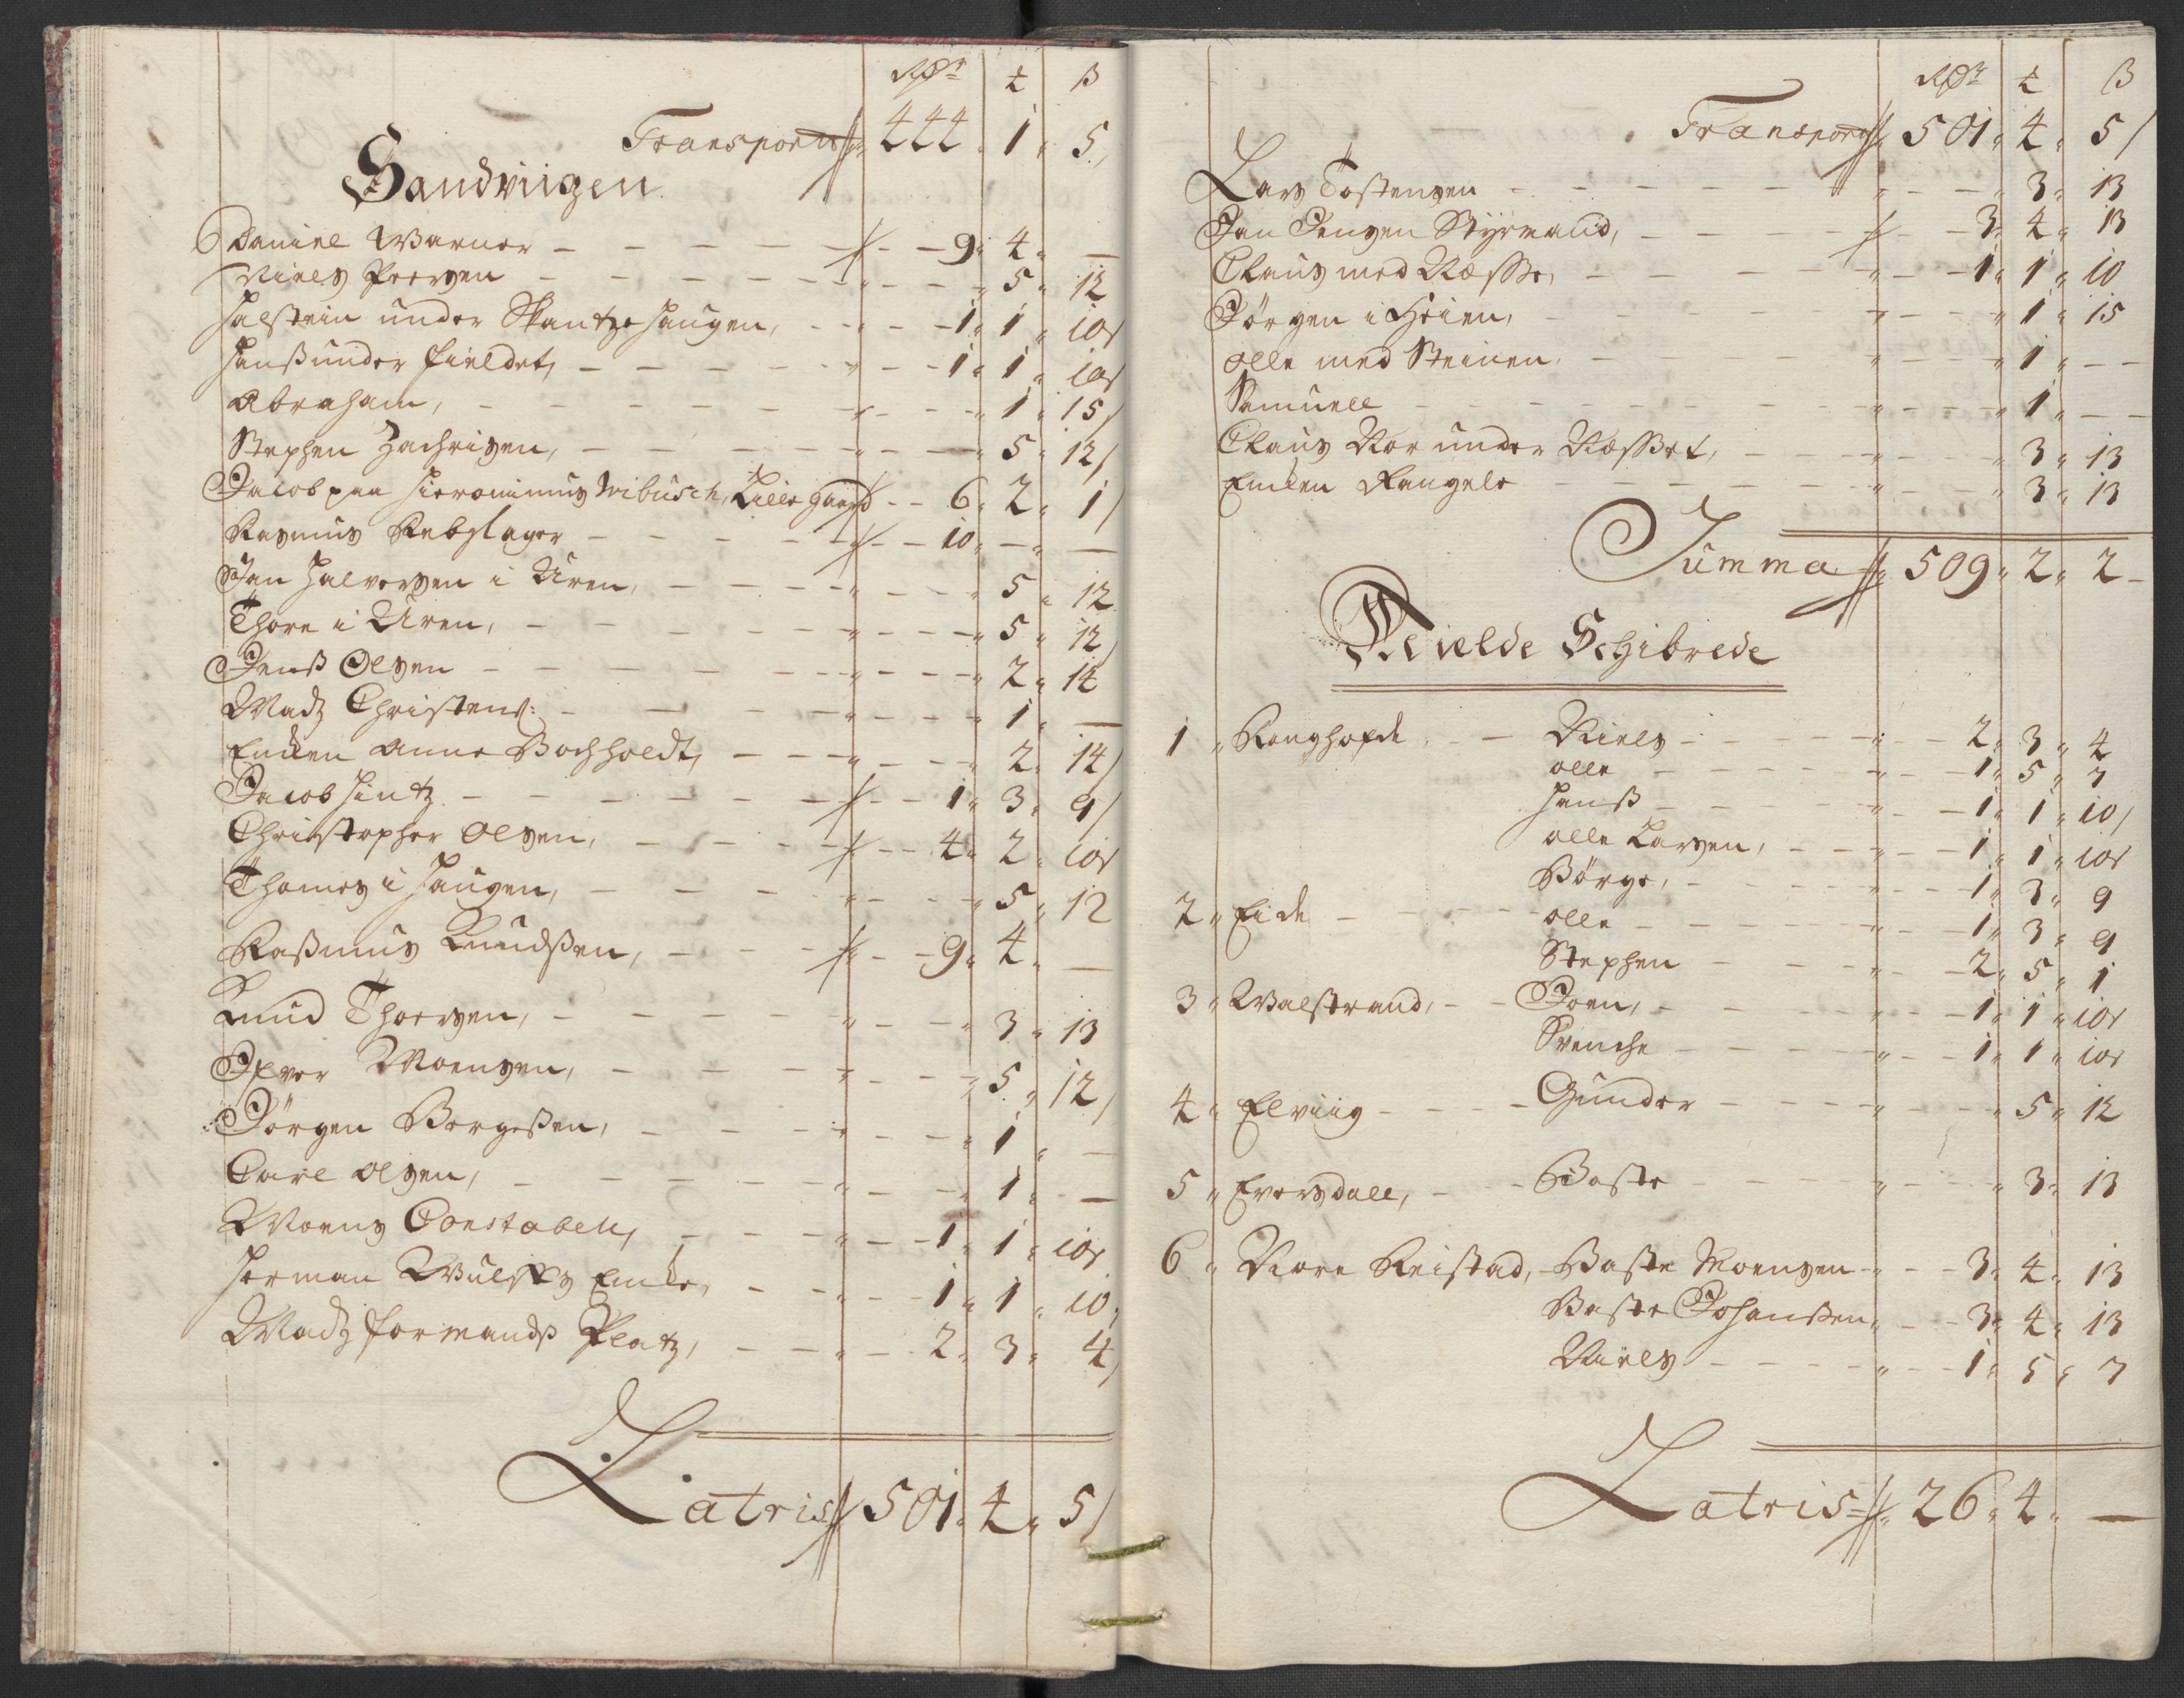 Rdr ȶ ß
Transport 444 1 5
Sandviigen
Daniel Warner - - - - 9 4 —
Niels Peersen - - - - 5 12
Halstein under Skantze Haugen, - - 1 1 10
Hanß under fieldet, - - - 1 1 10
Abraham, - - - - 1 15
Stephen Zachrisen, - - - - 5 12
Jacob paa Hieronimus Wibusch, Lille gaard - - 6 2 1
Rasmus Rebslager - - - 10 — —
Jan Halvorsen i Uren, - - - 5 12
Thore i Uren, - - - - 5 12
Jenß Olsen - - - - 2 14
Madz Christens: - - - 1 —
Encken Anne Bochholdt, - - - 2 14
Jacob Hintz - - - - 1 3 9
Christopher Olsen, - - - 4 2 10
Thomes i Haugen, - - - - 5 12
Raßmus Knudßen, - - - 9 4 —
Knud Thoersen, - - - - 3 13
Iver Monsen, - - - - 5 12
Jørgen Børgeßen, - - - - 1 —
Carl Olsen, - - - - 1 —
Moens Constabell, - - - 1 1 10
Herman Wulffs Encke, - - 1 1 10
Madz formands Platz, - - - 2 3 4
Latris 501 4 5
Rdr ȶ ß
Transport 501 4 5
Lars Tostensen - - - - 3 13
Jan Jensen Styrmand, - - - 3 4 13
Claus med Næsse, - - - 1 1 10
Jørgen i Heien, - - - - 1 15
Olle med Steinen - - - - 1 - -
Samuell - - - - 1 - -
Claus Nor under Næsset, - - - 3 13
Encken Rangele - - - - 3 13
Summa 509 2 2
Schibrede
1 Ronghopde - - Niels - - - 2 3 4
Olle - - - 1 5 7
Hanß - - - 1 1 10
Olle Larsen, - - - 1 1 10
Børge, - - - 1 3 9
2 Eide - - - Olle - - - 1 3 9
Stephen - - - 2 5 1
3 Walstrand, - - Joen, - - - 1 1 10
Svenche - - - 1 1 10
4 Elviig - - - Gunder - - - 5 12
5 Eversdall, - - Baste - - - 3 13
6 Nore Reistad, - Baste Monsen - - 3 4 13
Baste Johanßen - - 3 4 13
Niels - - - 1 5 7
Latris 26 4 —